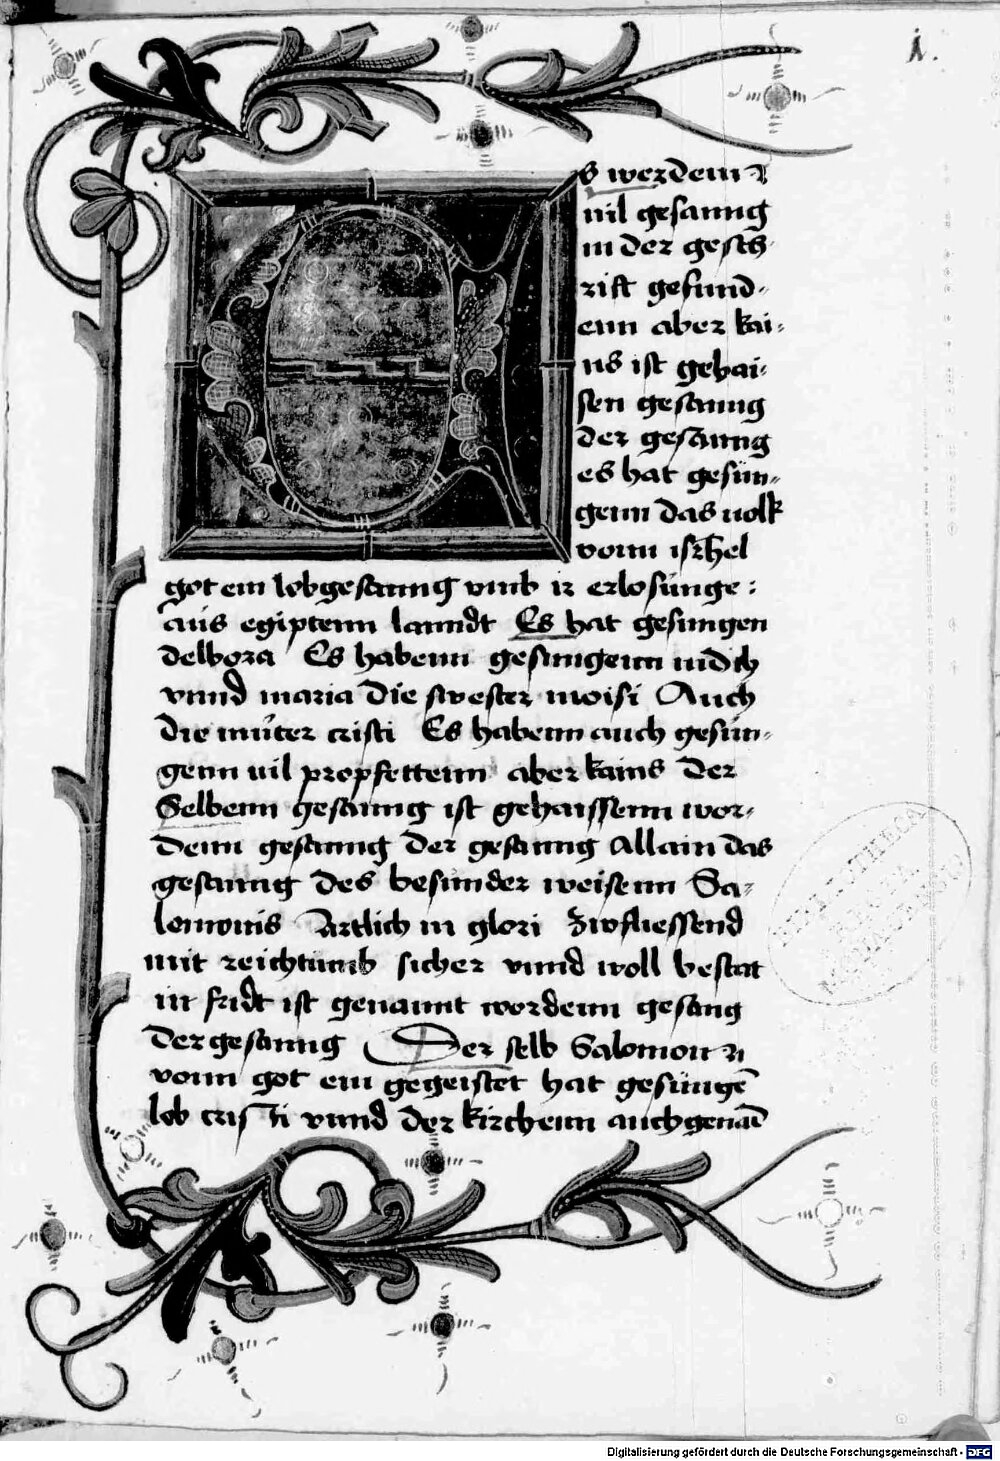 i.
Es werdenn
vil gesanng
in der gesch-
rift gesund-
enn aber kai-
ns ist gehai-
sen gesanng
der gesanng
es hat gesün-
genn das volk
vonn isrhel
got ein lobgesanng vmb ir erlosünge:
aüs egiptenn lanndt Es hat gesungen
delbora Es habenn gesungenn iudith
vnnd maria die swester moisi Auch
die müter cristi Es habenn auch gesün-
genn vil propfettenn aber kains der
Selbenn gesanng ist gehaissenn wor-
denn gesanng der gesanng Allain das
gesanng des besunder weisenn Sa-
lomonis Artlich in glori Zwfliessend
mit reichtumb sicher vnnd woll bestat
in fridt ist genannt wordenn gesang
der gesanng Der selb Salomon
vonn got ein gegeistet hat gesungē
lob cristi vnnd der kirchenn auch genād
BIBLIOTHECA
REGIA
MONACENSIS
Digitalisierung gefördert durch die Deutsche Forschungsgemeinschaft - DFG